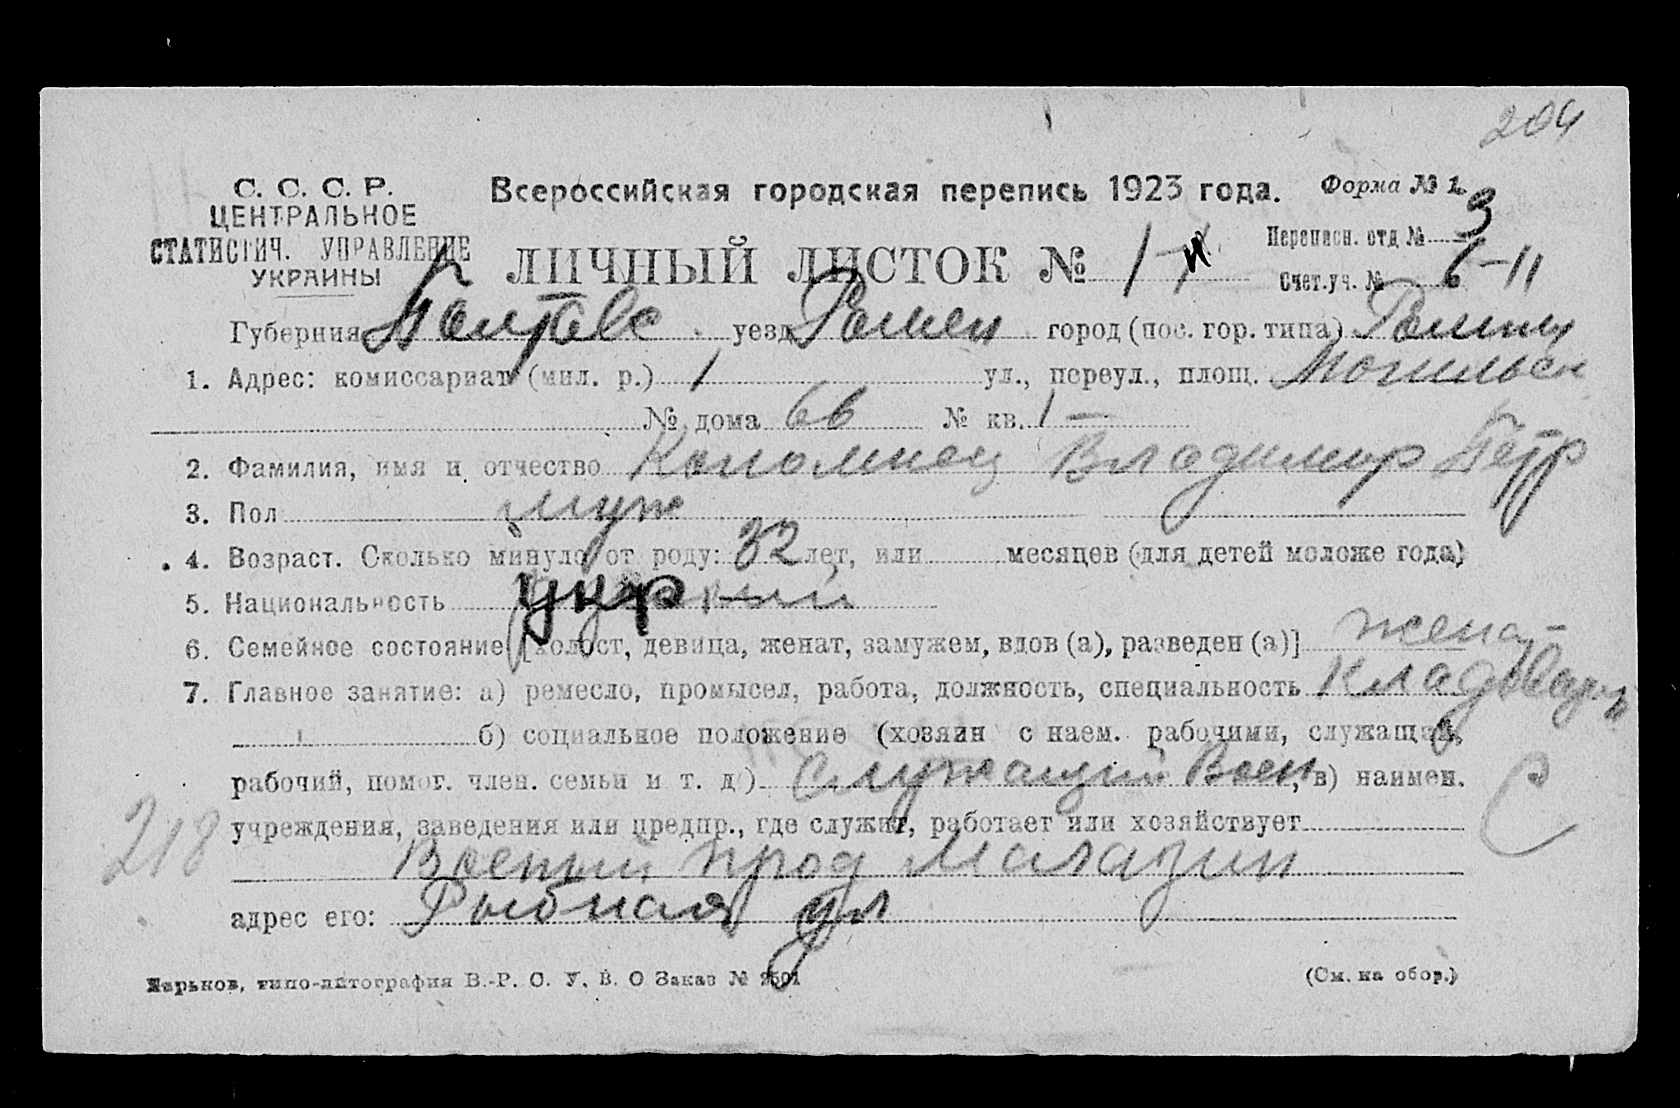 204
С. С. С. Р.
ЦЕНТРАЛЬНОЕ
СТАТИСТИЧ. УПРАВЛЕНИЕ
УКРАИНЫ
Всероссийская городская перепись 1923 года.
Форма № 1.
ЛИЧНЫЙ ЛИСТОК № 1
Переписн. отд № 3
Счет.уч. № 6-11
Губерния Полтавс уезд Ромен город (пос. гор. типа) Ромны
1. Адрес: комиссариат (мил. р.) 1 ул., переул., площ.
№ дома 66 № кв. 1 —
2. Фамилия, имя и отчество Коломиец Владимир Петр
3. Пол муж
4. Возраст. Сколько минуло от роду: 32 лет, или месяцев (для детей моложе года)
5. Национальность укр
6. Семейное состояние [холост, девица, женат, замужем, вдов (а), разведен (а)] женат
7. Главное занятие: а) ремесло, промысел, работа, должность, специальность Кладовщик
б) социальное положение (хозяин с наем. рабочими, служащий,
рабочий, помог. член. семьи и т. д.) Служащий Воен, в) наимен.
учреждения, заведения или предпр., где служит, работает или хозяйствует
218
С
Военный прод Магазин
адрес его: Рыбная ул
Харьков, типо-литография В.-Р. О. У. В. О Заказ № 2501
(См. на обор.)